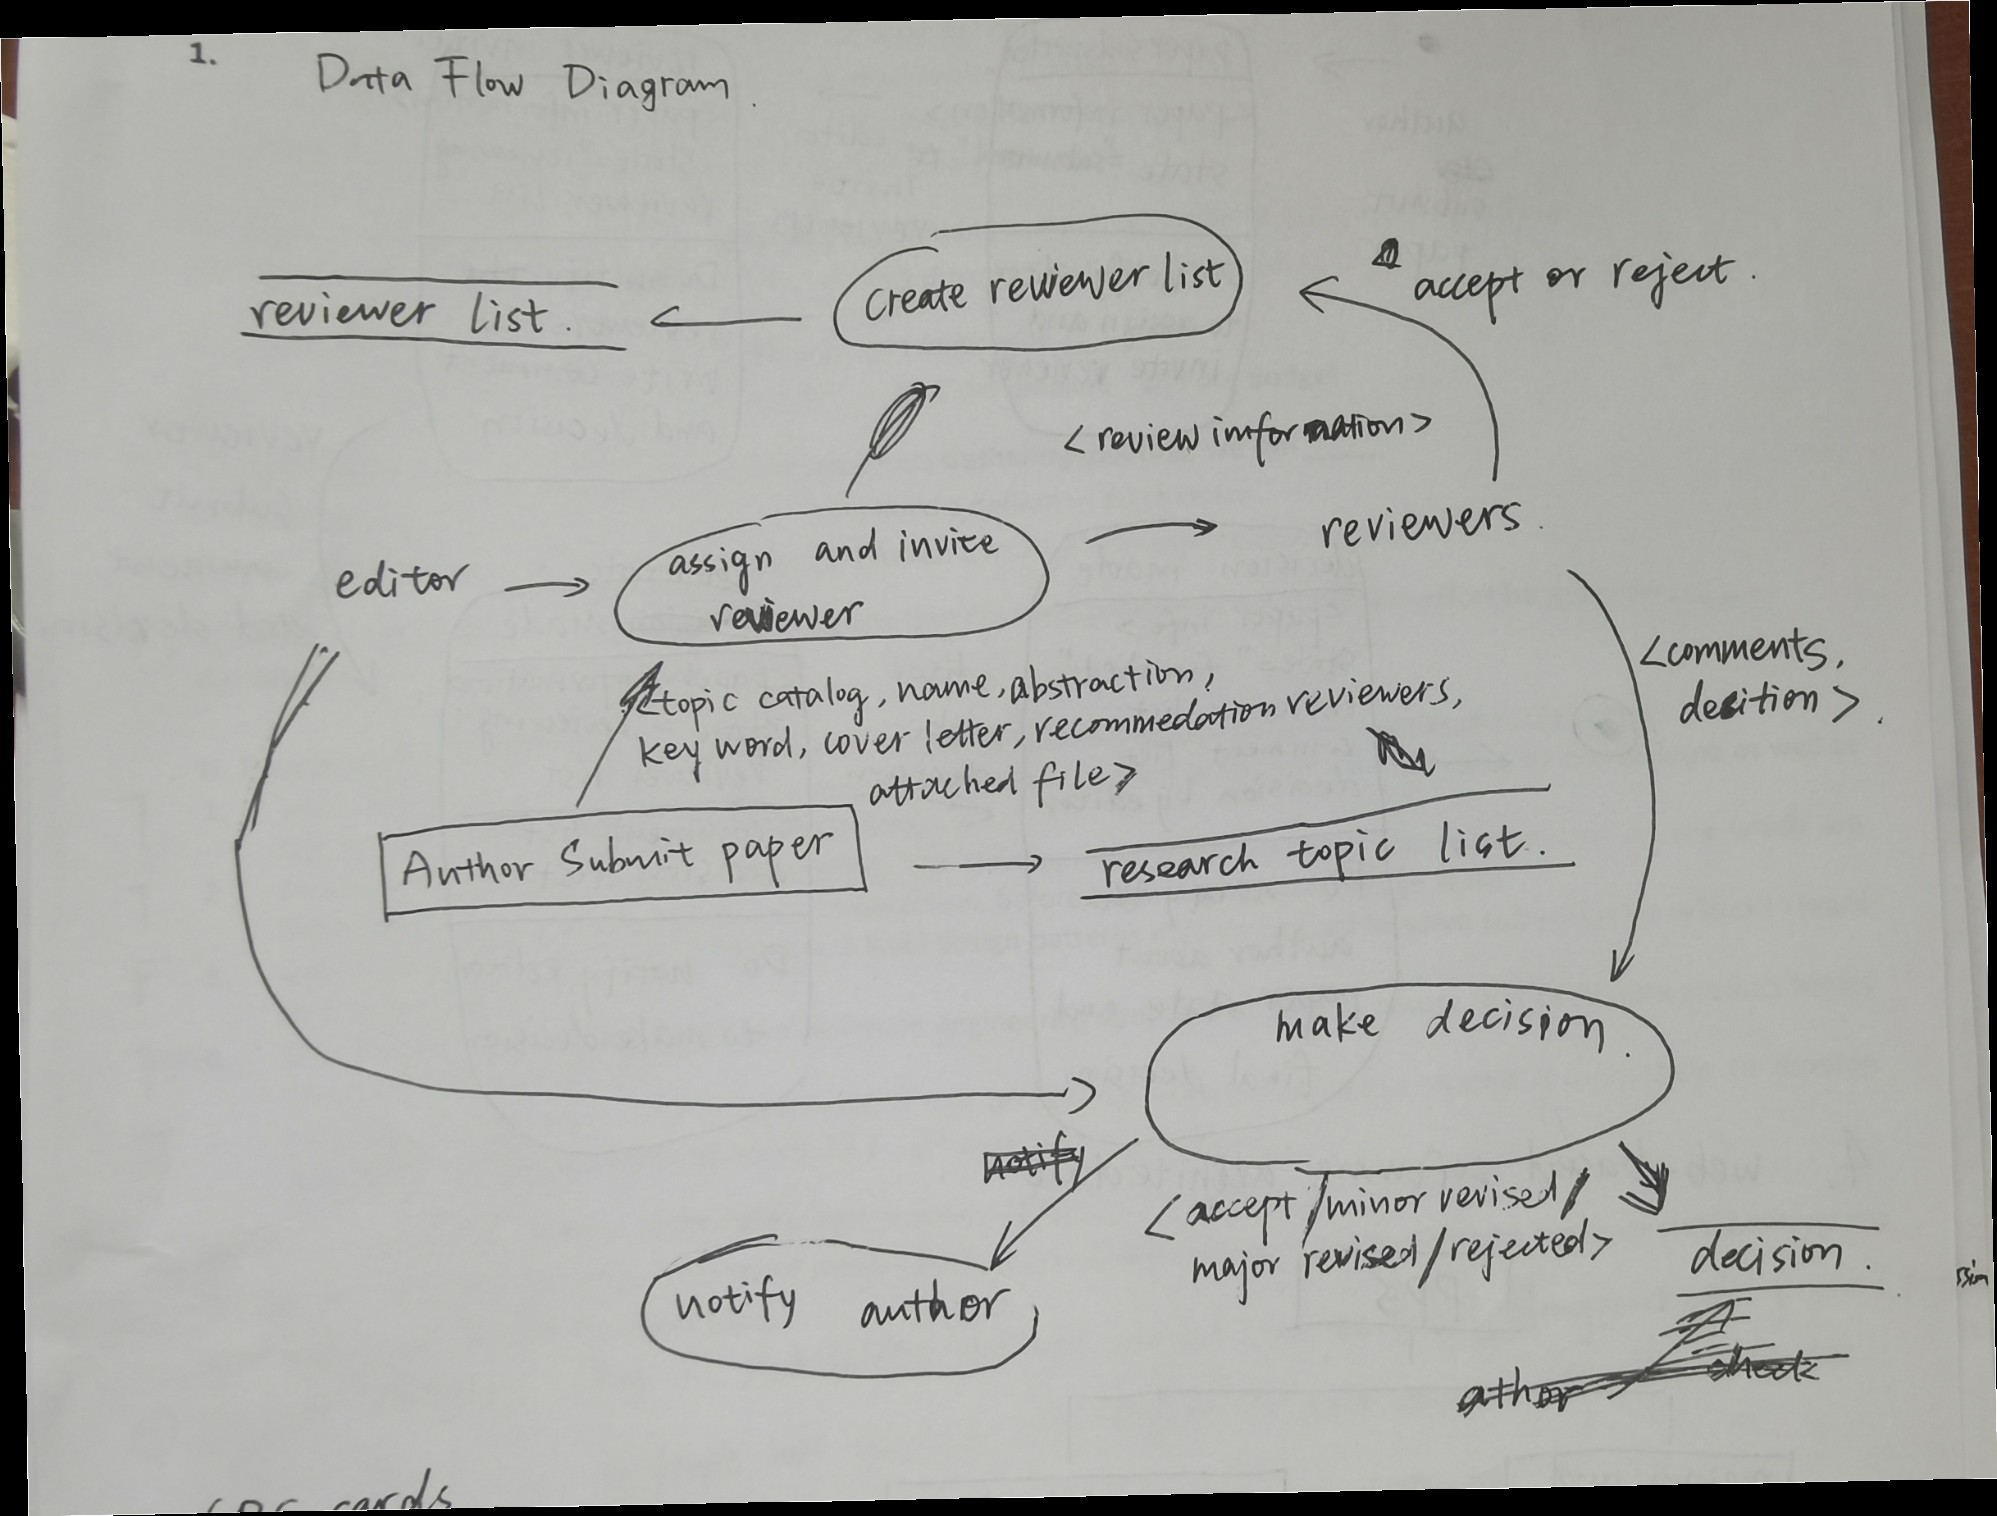 1. Data Flow Diagram.
accept or reject.
create reviewer list
reviewer list.
<review imformation>
reviewers.
assign and invite
reviewer
editor
<comments,
decition>.
<topic catalog, name, abstraction,
key word, cover letter, recommedation reviewers,
attached file>
Author Submit paper
research topic list.
make decision.
notify
<accept/minor revised/
major revised/rejected>
decision.
notify author
athor
check
cards